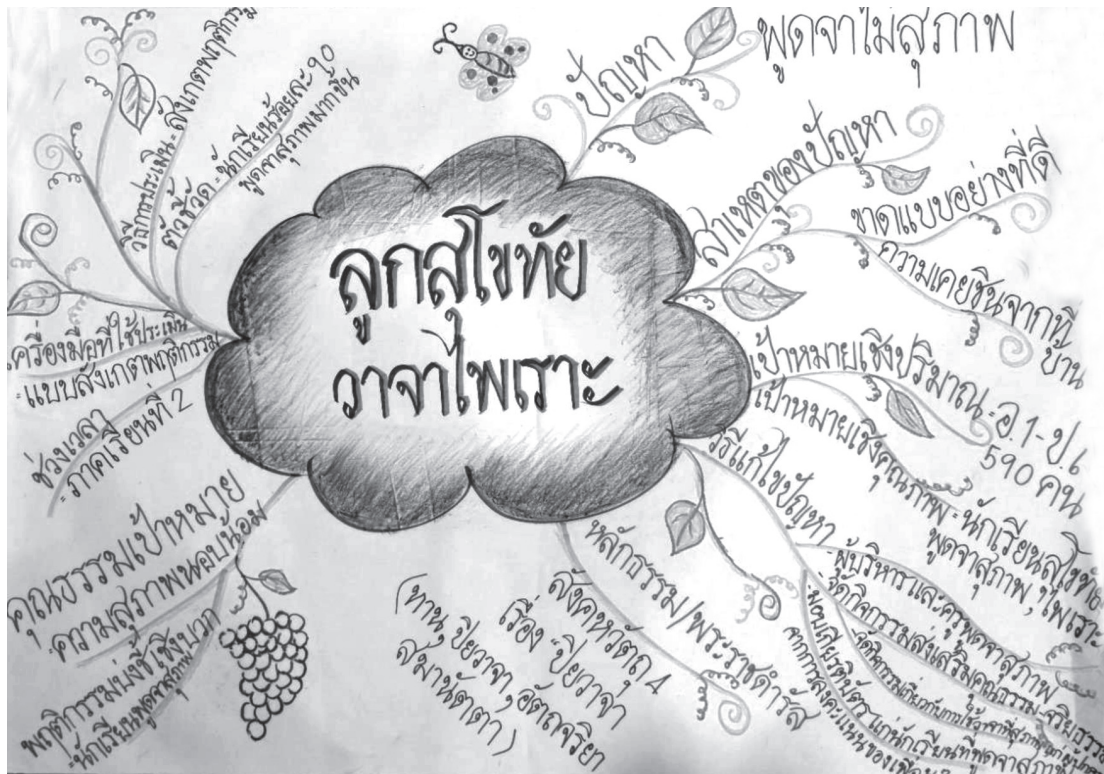 ลูกสุโขทัย
วาจาไพเราะ
ปัญหา
พูดจาไม่สุภาพ
สาเหตุของปัญหา
ขาดแบบอย่างที่ดี
ความเคยชินจากที่
บ้าน
เป้าหมายเชิงปริมาณ = อ.1 - ป.6
590 คน
เป้าหมายเชิงคุณภาพ = นักเรียนสุโขทัย
พูดจาสุภาพ, ไพเราะ
วิธีแก้ไขปัญหา
ผู้บริหารและครูพูดจาสุภาพ
จัดกิจกรรมส่งเสริมคุณธรรม-จริยธรรม
จัดกิจกรรมเกี่ยวกับการใช้วาจาที่สุภาพ
มอบเกียรติบัตรแก่นักเรียนที่พูดจาสุภาพ
จากการลงคะแนนของเพื่อน
หลักธรรม/พระราชดำรัส
สังคหวัตถุ 4
เรื่อง "ปิยวาจา
(ทาน, ปิยวาจา, อัตถจริยา
สมานัตตา)
คุณธรรมเป้าหมาย
ความสุภาพนอบน้อม
พฤติกรรมบ่งชี้เชิงบวก
=นักเรียนพูดจาสุภาพ
ช่วงเวลา
= ภาคเรียนที่ 2
เครื่องมือที่ใช้ประเมิน
= แบบสังเกตพฤติกรรม
วิธีการประเมิน = สังเกตพฤติกรรม
ตัวชี้วัด = นักเรียนร้อยละ 90
พูดจาสุภาพมากขึ้น